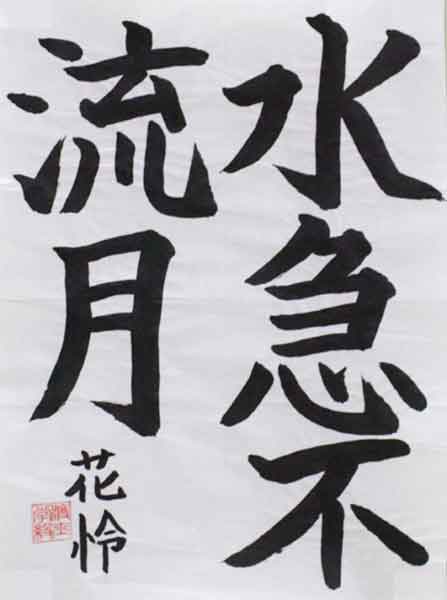 水急不
流月
花怜